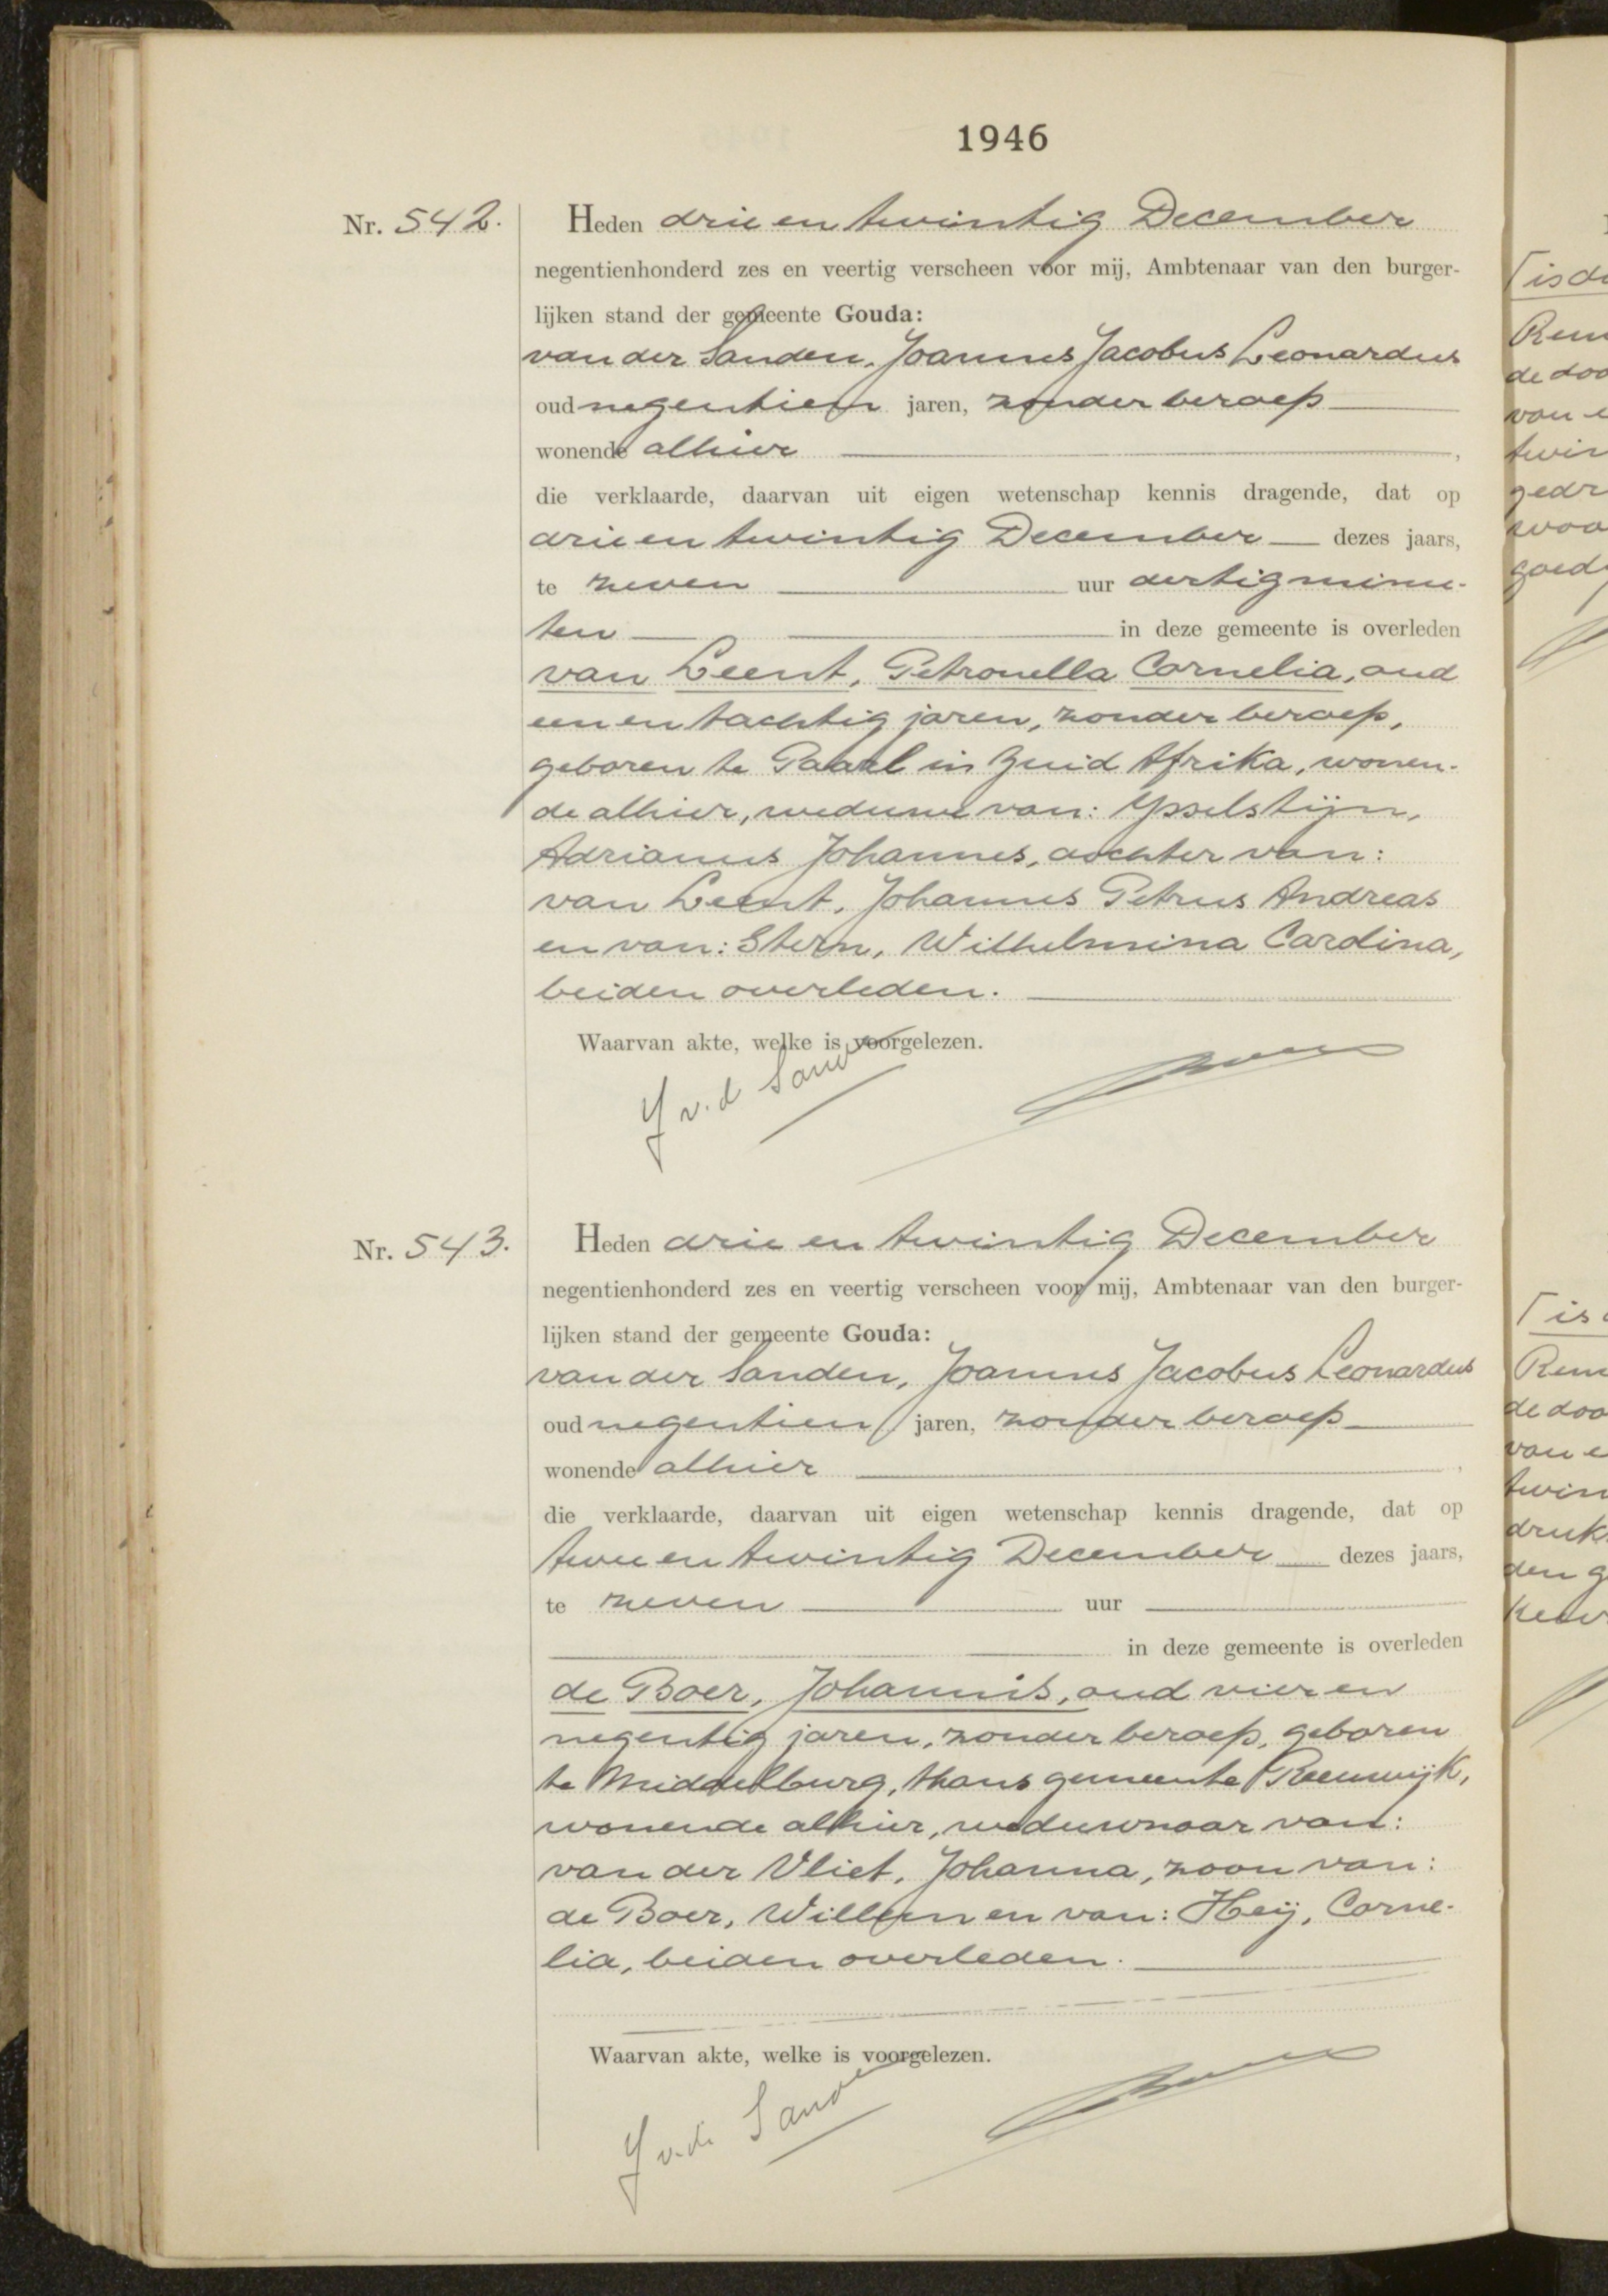 1946
Nr. 542.
Heden drie en twintig December
negentienhonderd zes en veertig verscheen voor mij, Ambtenaar van den burger-
lijken stand der gemeente Gouda:
van der Sanden, Joannes Jacobus Leonardus
oud negentien jaren, zonder beroep
wonende alhier,
die verklaarde, daarvan uit eigen wetenschap kennis dragende, dat op
drie en twintig December dezes jaars,
te zeven uur dertig minu-
ten in deze gemeente is overleden
van Leent, Petronella Cornelia, oud
een en tachtig jaren, zonder beroep,
geboren te Paarl in Zuid Afrika, wonen-
de alhier, weduwe van: Ysselstijn,
Adrianus Johannes, dochter van:
van Leent, Johannes Petrus Andreas
en van: Stern, Wilhelmina Cardina,
beiden overleden.
Waarvan akte, welke is voorgelezen.
J v. d Sanden
Nr. 543.
Heden drie en twintig December
negentienhonderd zes en veertig verscheen voor mij, Ambtenaar van den burger-
lijken stand der gemeente Gouda:
van der Sanden, Joannes Jacobus Leonardus
oud negentien jaren, zonder beroep
wonende alhier,
die verklaarde, daarvan uit eigen wetenschap kennis dragende, dat op
twee en twintig December dezes jaars,
te zeven uur
in deze gemeente is overleden
de Boer, Johannis, oud vier en
negentig jaren, zonder beroep, geboren
te Middelburg, thans gemeente Reeuwijk,
wonende alhier, weduwnaar van:
van der Vliet, Johanna, zoon van:
de Boer, Willem en van: Heij, Corne-
lia, beiden overleden.
Waarvan akte, welke is voorgelezen.
J v. d. Sanden